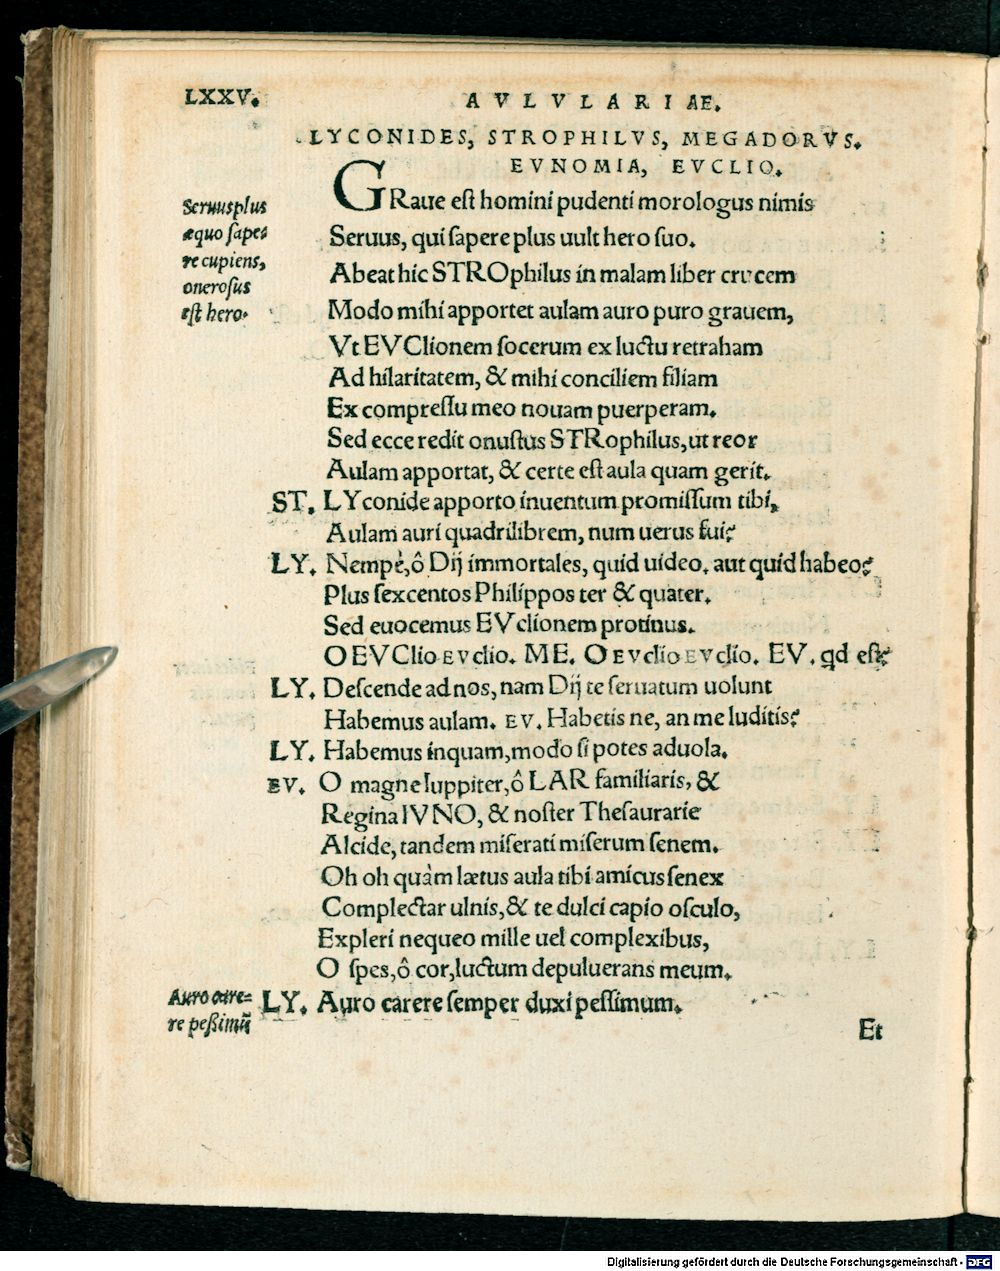 LXXV.
AVLVLARIAE.
LYCONIDES, STROPHILVS, MEGADORVS.
EVNOMIA, EVCLIO.
GRaue est homini pudenti morologus nimis
Seruus, qui sapere plus uult hero suo.
Abeat hic STROphilus in malam liber crucem
Modo mihi apportet aulam auro puro grauem,
Vt EVClionem socerum ex luctu retraham
Ad hilaritatem, & mihi conciliem filiam
Ex compressu meo nouam puerperam.
Sed ecce redit onustus STRophilus, ut reor
Aulam apportat, & certe est aula quam gerit.
ST. LYconide apporto inuentum promissum tibi,
Aulam auri quadrilibrem, num uerus fui?
LY. Nempè, ô Dij immortales, quid uideo. aut quid habeo?
Plus sexcentos Philippos ter & quater.
Sed euocemus EVclionem protinus.
O EVClio EVclio. ME. O EVclio EVclio. EV. qd est?
LY. Descende ad nos, nam Dij te seruatum uolunt
Habemus aulam. EV. Habetis ne, an me luditis?
LY. Habemus inquam, modo si potes aduola.
EV. O magne Iuppiter, ô LAR familiaris, &
Regina IVNO, & noster Thesaurarie
Alcide, tandem miserati miserum senem.
Oh oh quàm lætus aula tibi amicus senex
Complectar ulnis, & te dulci capio osculo,
Expleri nequeo mille uel complexibus,
O spes, ô cor, luctum depuluerans meum.
LY. Auro carere semper duxi pessimum.
Et
Seruus plus
æquo sape-
re cupiens,
onerosus
est hero.
Auro care-
re peßimũ
Digitalisierung gefördert durch die Deutsche Forschungsgemeinschaft - DFG